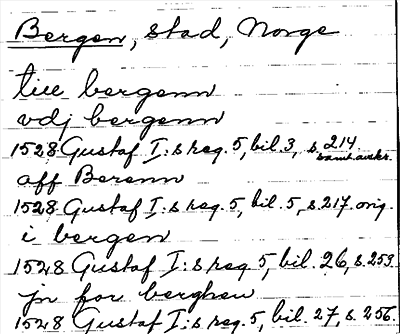 Bergen, stad, Norge
till bergenn
vdj bergenn
1528 Gustaf I:s reg. 5, bil. 3, s. 214.
samh. avskr.
aff Berenn
1528 Gustaf I:s reg. 5, bil. 5, s. 217. orig.
i bergen
1528 Gustaf I:s reg. 5, bil. 26, s. 253.
jn for berghen
1528 Gustaf I:s reg. 5, bil. 27, s. 256.